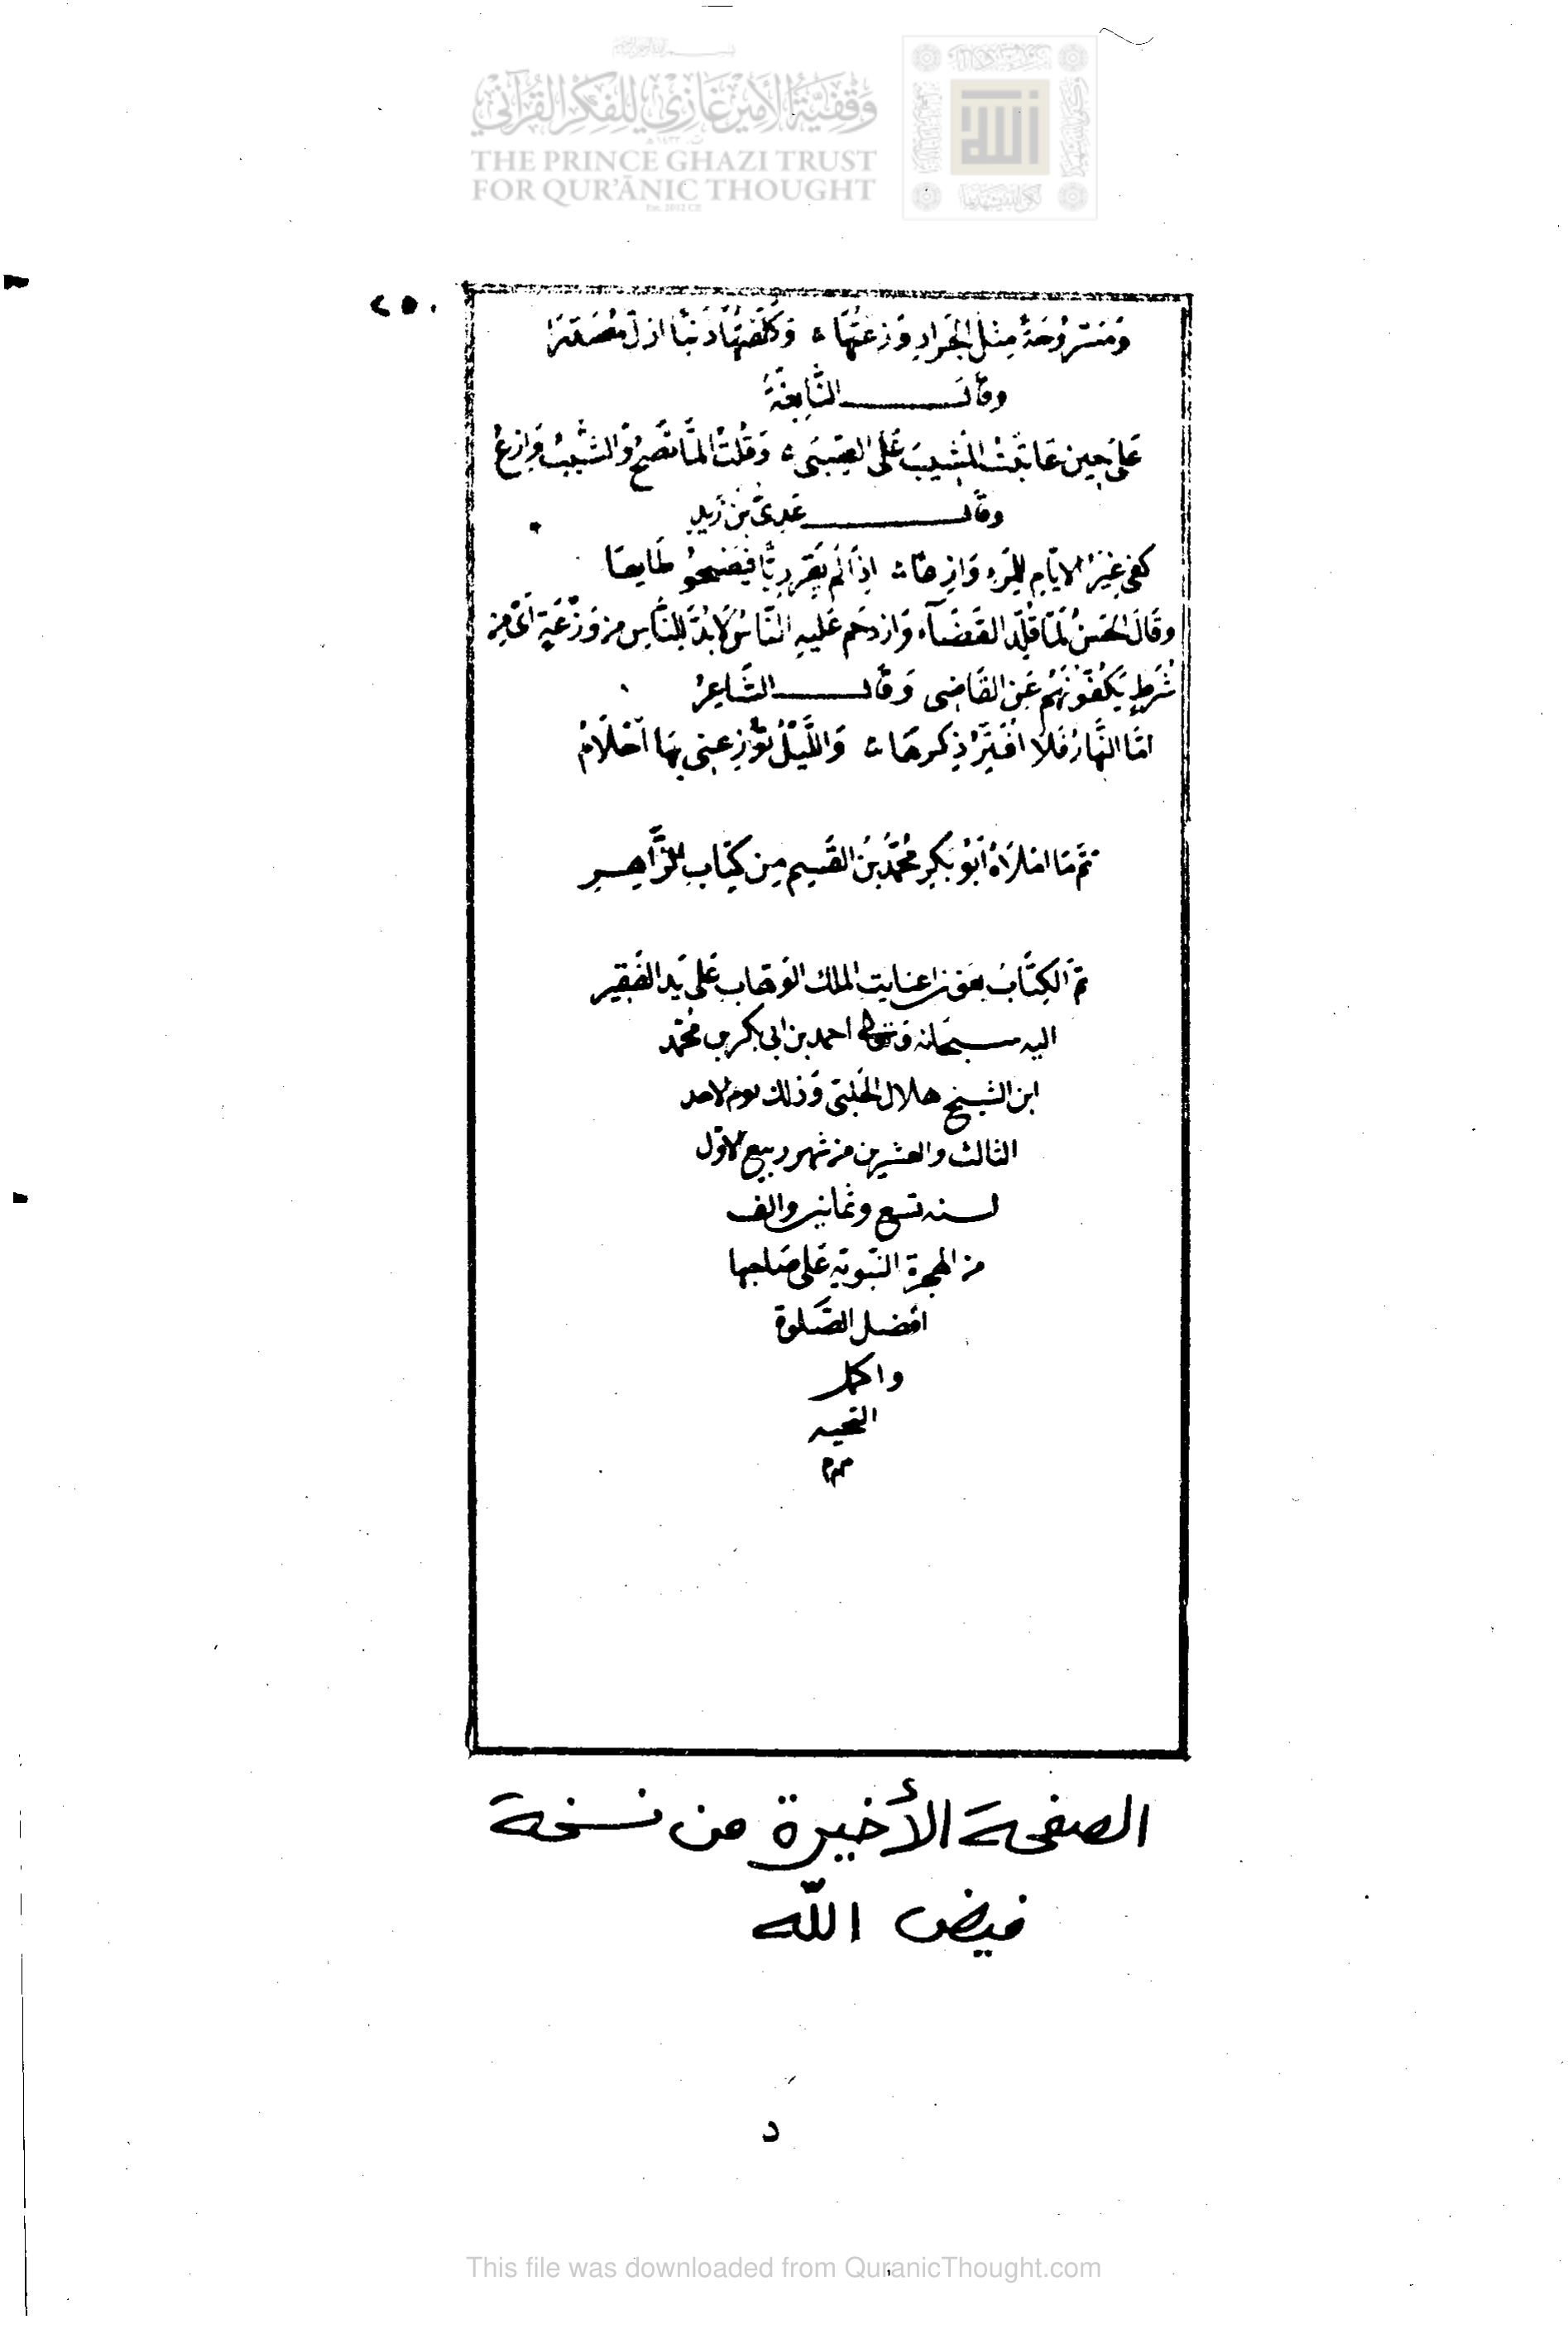 وقفية الأمير غازي للفكر القرآني
THE PRINCE GHAZI TRUST
FOR QUR'ĀNIC THOUGHT
Est. 2012 CE
٢٥٠
وَمَسْرُوحَةٍ مِثْلَ الجَرَادِ وَزَعْتُهَا وَكَلَّفْتُهَا ذِئْبًا ازلّ مُصَدَّرَا
وقال النَّابِغَةُ
عَلَى حِينَ عَاتَبْتُ المَشِيبَ عَلَى الصِّبَى وَقُلْتُ المَّا تَصْحُ وَالشَّيْبُ وَازِعُ
وقال عَدِيُّ بْنُ زَيْدٍ
كَفَى غِيَرُ الايَّامِ لِلمَرْءِ وَازِعًا اِذَا لَم يَقِرْ رِيًّا فَيَصْحُو طَايِعَا
وقَالَ الحَسَنُ لَمَّا قُلِّدَ القَضَآءَ وَازدحَم عَليهِ النَّاسُ لَابُدَّ لِلنَّاسِ من وَزَعَةٍ اَىْ من
شُرَطٍ يَكُفُّونَهُم عَنِ القَاضِى وَقَال الشَّاعِرُ
امَّا النَّهَارُ فَلَا اُفَتِّرُ ذِكرهَا وَاللَّيْلُ تُوزِعُنِى بِهَا اَحْلَامُ
تَمَّ مَا امْلَاهُ اَبُو بَكْرٍ مُحَمَّدُ بْنُ القَسِمِ مِن كِتَابِ الزَّاهِرِ
تمَّ الكِتَابُ بعَون عنايت الملك الوَهَّاب عَلى يَد الفَقِير
اليه سبحانه وَتعالى احمد بن ابى بكر بن مُحَمَّد
ابن الشيخ هلال الحَلَبىّ وَذلك يوم الاحد
الثالث والعشرين من شهر ربيع الاَوّل
لسنه تسع وثمانين والف
من الهجرة النّبوية عَلى صَاحبها
افضل الصَّلوة
واكمل
التحيه
م م م
الصفحة الأخيرة من نسخة
فيض اللّه
د
This file was downloaded from QuranicThought.com